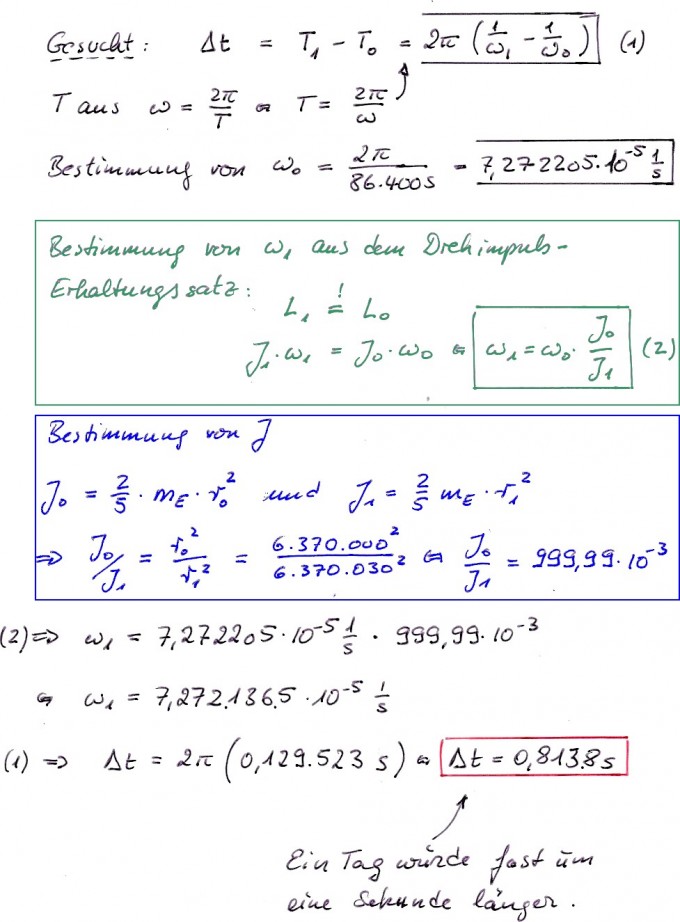 Gesucht: Δt = T₁ - T₀ = 2π (1/ω₁ - 1/ω₀) (1)
T aus ω = 2π/T ⇔ T = 2π/ω
Bestimmung von ω₀ = 2π/86.400s = 7,272205·10⁻⁵ 1/s
Bestimmung von ω₁ aus dem Drehimpuls-
Erhaltungssatz:
L₁ =! L₀
J₁·ω₁ = J₀·ω₀ ⇔ ω₁ = ω₀·J₀/J₁ (2)
Bestimmung von J
J₀ = 2/5 · mE · r₀² und J₁ = 2/5 mE · r₁²
⇒ J₀/J₁ = r₀²/r₁² = 6.370.000²/6.370.030² ⇔ J₀/J₁ = 999,99·10⁻³
(2) ⇒ ω₁ = 7,272205·10⁻⁵ 1/s · 999,99·10⁻³
⇔ ω₁ = 7,272.136.5·10⁻⁵ 1/s
(1) ⇒ Δt = 2π (0,129.523 s) ⇔ Δt = 0,813.8s
Ein Tag würde fast um
eine Sekunde länger.